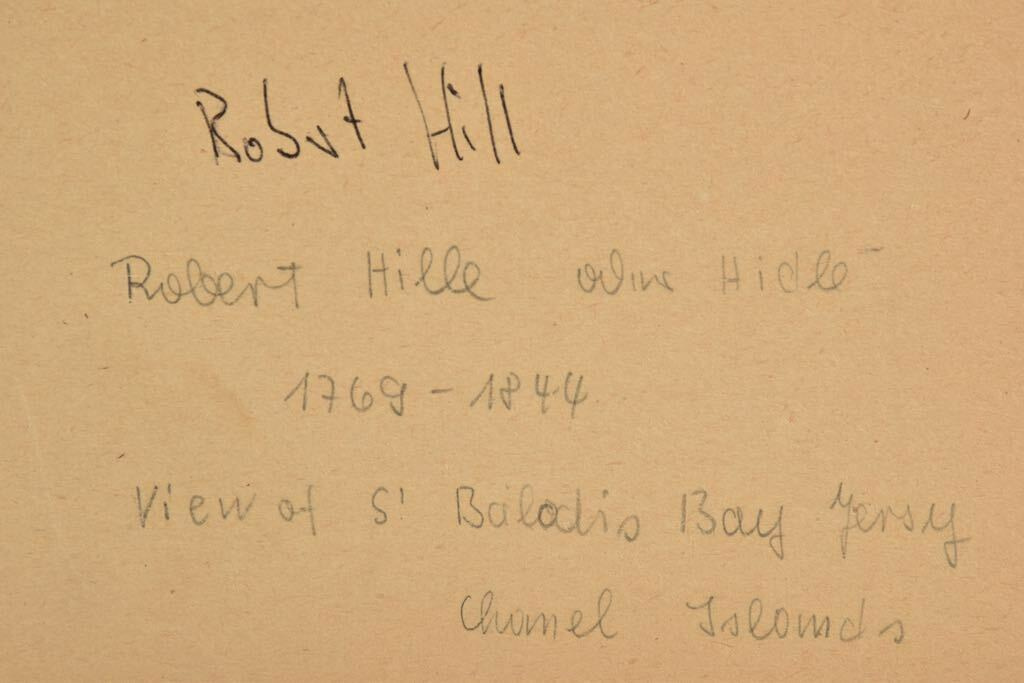 Robert Hill
Robert Hille oder Hidle
1769 - 1844
View of S' Baladis Bay Jersy
Chanel Islands